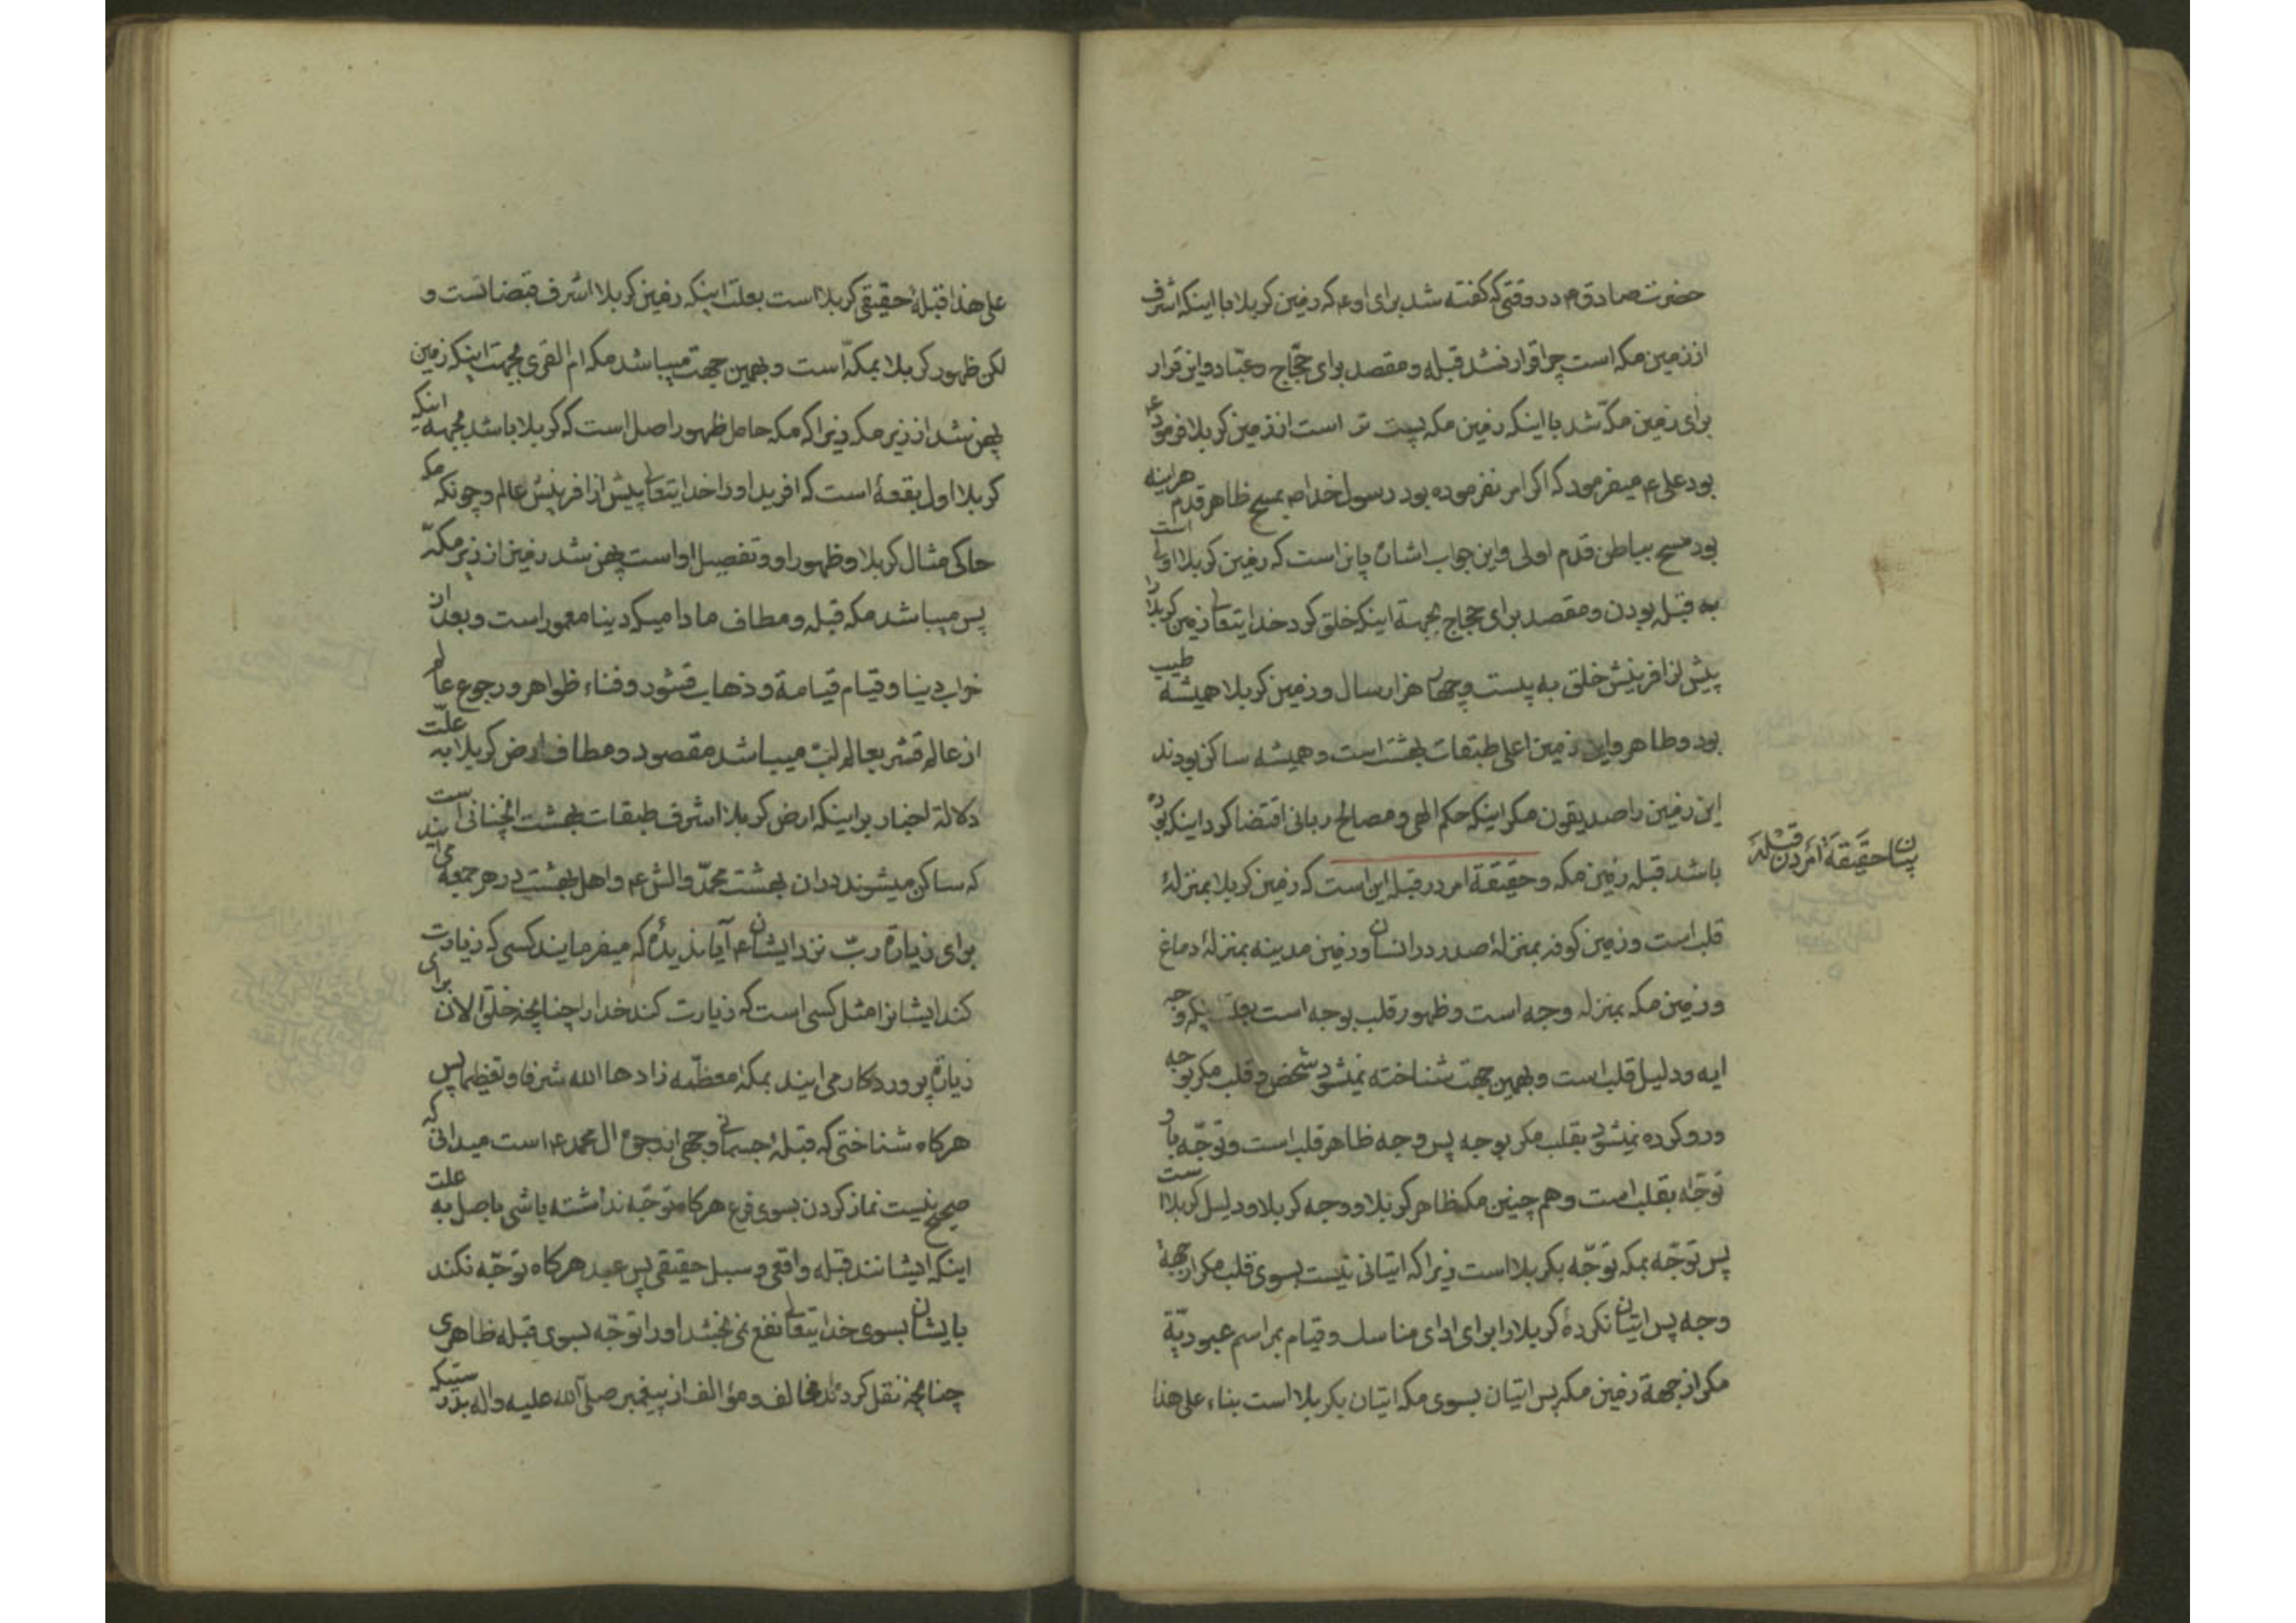 حضرت صادق م در وقتی که کفته شد برای او ع که زمین کربلا با اینکه اشرف
از زمین مکه است چرا قرار نشد قبله و مقصد برای حجّاج و عبّاد و این قرار
برای زمین مکّه شد با اینکه زمین مکه پست تر است از زمین کربلا فرمود ع
بود علی ع میفرمود که اکر امر نفرموده بود رسول خدا ص بمسح ظاهر قدم هراینه
بود مسح بباطن قدم اولی و این جواب اشاره باین است که زمین کربلا اولی است
به قبله بودن و مقصد برای حجاج بجهة اینکه خلق کرد خدایتعالی زمین کربلا را
پیش از افرینش خلق به بیست و چهار هزار سال و زمین کربلا همیشه طیب
بود و طاهر و این زمین اعلی طبقات بهشت است و همیشه ساکن بودند
این زمین را صدیقون مکر اینکه حکم الهی و مصالح ربانی اقتضا کرد اینکه بوده
باشد قبله زمین مکه و حقیقة امر در قبله این است که زمین کربلا بمنزلهٔ
قلب است و زمین کوفه بمنزلهٔ صدر در انسان و زمین مدینه بمنزلهٔ دماغ
و زمین مکه بمنزله وجه است و ظهور قلب بوجه است بعلت اینکه وجه
ایه و دلیل قلب است و بهمین جهت شناخته نمیشود شخص و قلب مکر بوجه
و رو کرده نمیشود بقلب مکر بوجه پس وجه ظاهر قلب است و توجّه باو
توجّه بقلب است و هم چنین مکه ظاهر کربلا و وجه کربلا و دلیل کربلا است
پس توجّه بمکه توجّه بکربلا است زیرا که اتیانی نیست بسوی قلب مکر از جههٔ
وجه پس اتیان نکردهٔ کربلا را برای ادای مناسک و قیام بمراسم عبودیّة
مکر از جههٔ زمین مکه پس اتیان بسوی مکه اتیان بکربلا است بناء علی هذا
بیان حقیقة امر در قبله
علی هذا قبلهٔ حقیقی کربلا است بعلت اینکه زمین کربلا اشرف قبضات است و
لکن ظهور کربلا بمکّه است و بهمین جهت میباشد مکه ام القری بجهت اینکه زمین
پهن شد از زیر مکه زیرا که مکه حامل ظهور اصل است که کربلا باشد بجهة اینکه
کربلا اول بقعهٔ است که افرید او را خدایتعالی پیش از افرینش عالم و چونکه مکه
حاکی مثال کربلا و ظهور او و تفصیل او است پهن شد زمین از زیر مکّه
پس میباشد مکه قبله و مطاف مادامیکه دنیا معمور است و بعد از
خراب دنیا و قیام قیامة و ذهاب قشور و فناء ظواهر و رجوع عالم
از عالم قشر بعالم لبّ میباشد مقصود و مطاف ارض کربلا به علّت
دلالة اخبار بر اینکه ارض کربلا اشرف طبقات بهشت انچنانی است
که ساکن میشوند در ان بهشت محمّد و الش ع و اهل بهشت در هر جمعه می ایند
برای زیارة ربّ نزد ایشان ع آیا ندیدهٔ که میفرمایند کسی که زیارت
کند ایشانرا مثل کسی است که زیارت کند خدا را چنانچه خلق الان برای
زیارة پروردکار می ایند بمکهٔ معظّمه زادها الله شرفا و تعظیما پس
هرکاه شناختی که قبلهٔ جسمانی وجهی از وجوه ال محمد ع است میدانی که
صحیح نیست نماز کردن بسوی فرع هرکاه توجّه نداشته باشی باصل به علت
اینکه ایشانند قبله واقعی و سبل حقیقی پس عبد هرکاه توجّه نکند
بایشان بسوی خدایتعالی نفع نمی بخشد او را توجّه بسوی قبله ظاهری
چنانچه نقل کرده اند مخالف و مؤالف از پیغمبر صلی الله علیه و اله بدرستیکه